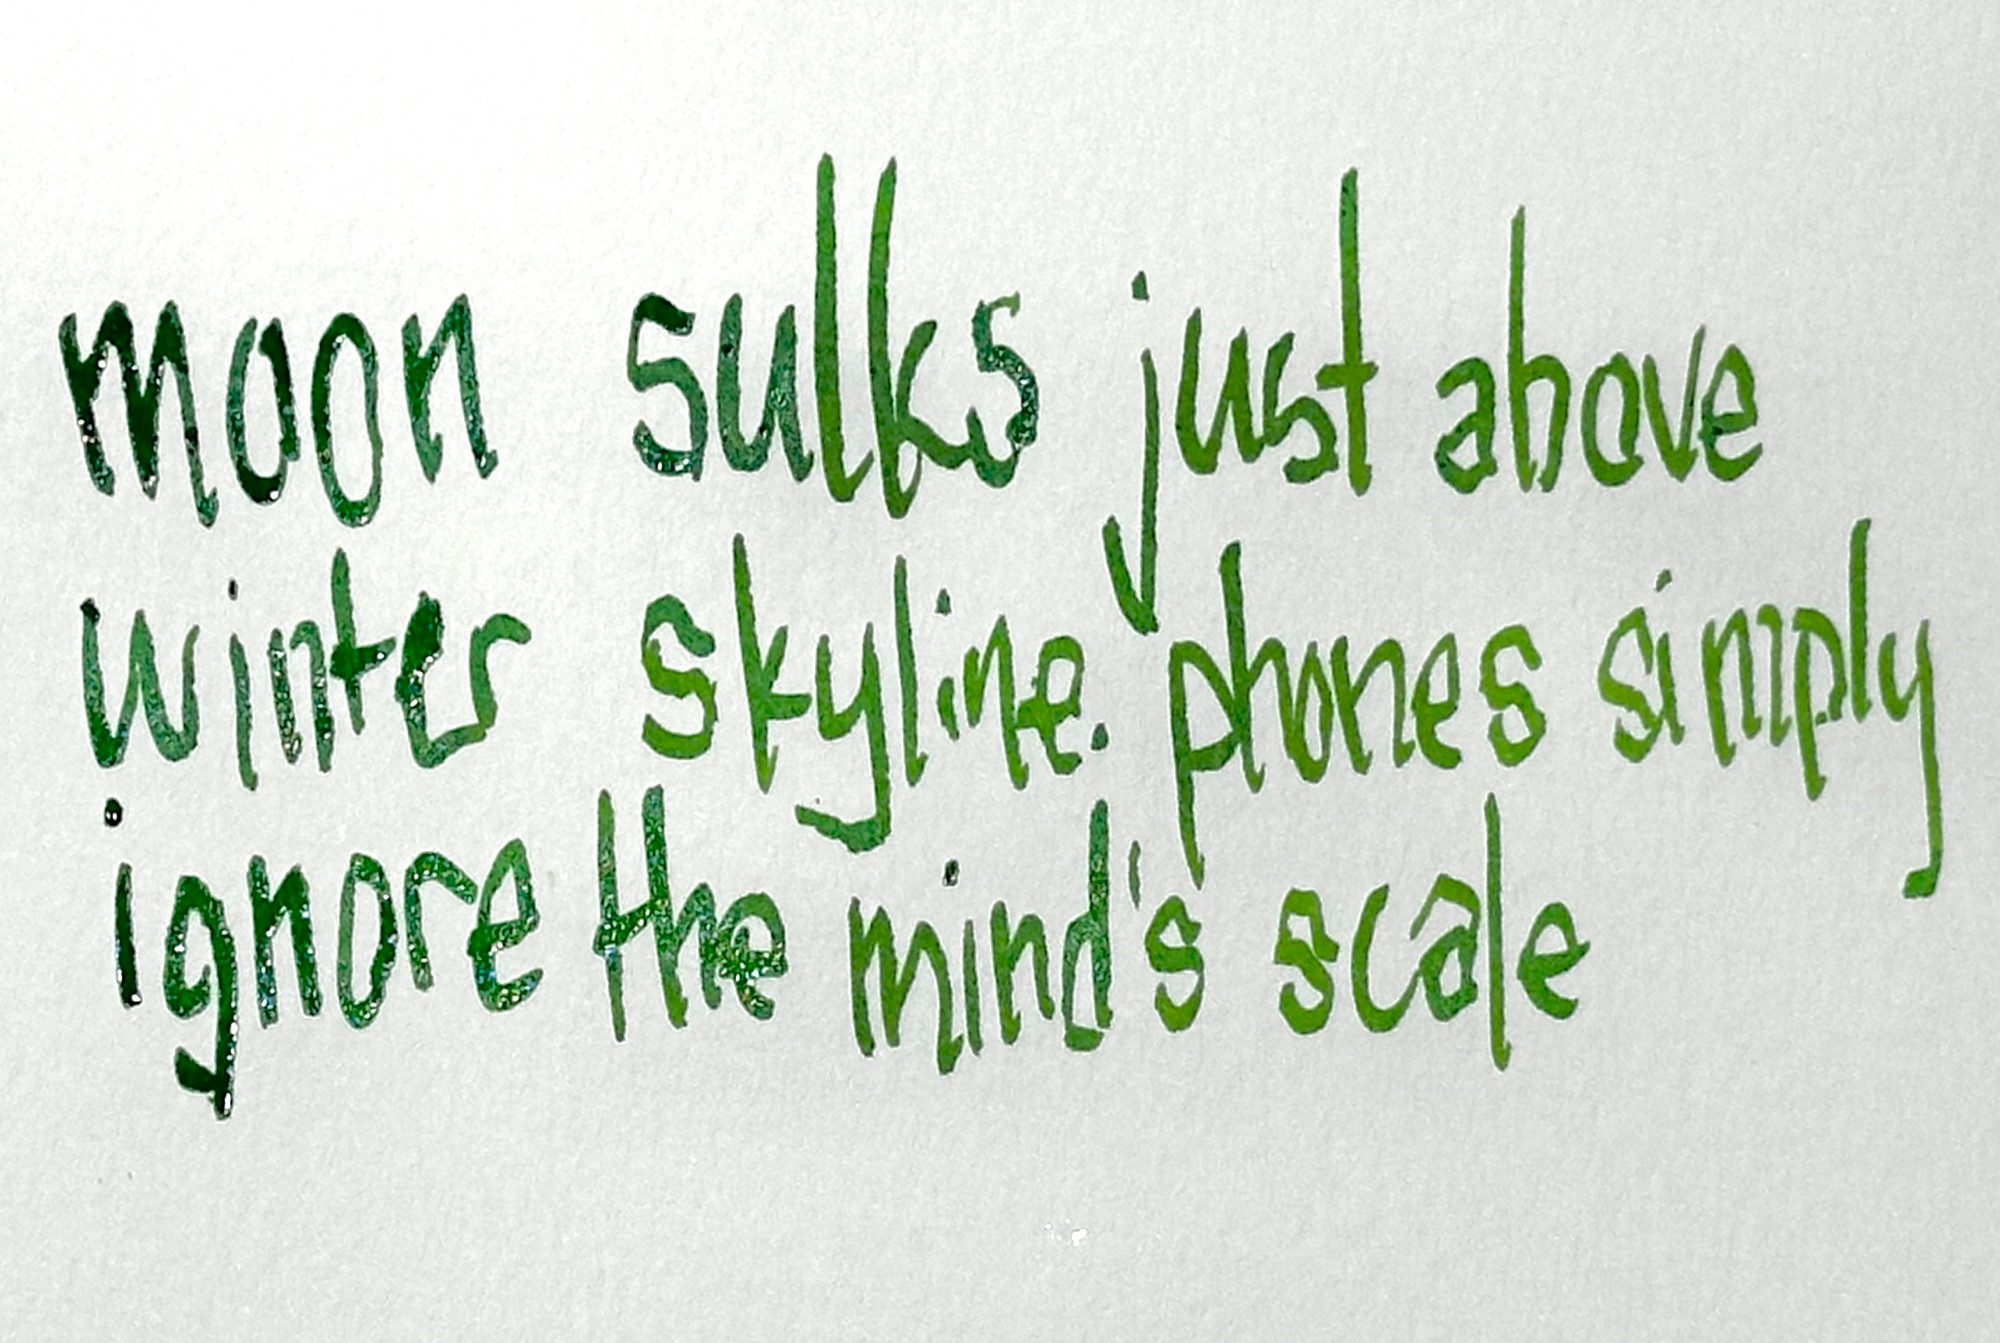 moon sulks just above
winter skyline. phones simply
ignore the mind's scale